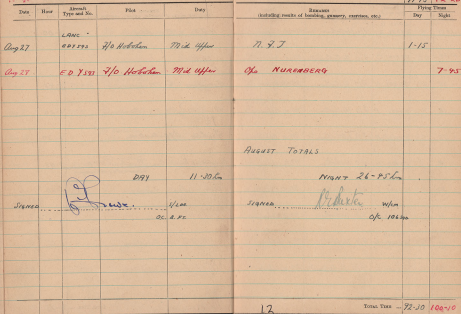 Date Hour Aircraft Type and No. Pilot Duty Remarks (including results of bombing, gunnery, exercises, etc.) Flying Times Day Night
LANC
Aug 27 F/O Hobohen Mid Upper N.F.T 1-15
Aug 27 ED F/O Hobohen Mid Upper Ops NUREMBERG 7-45
AUGUST TOTALS
DAY 11-30 hrs NIGHT 26-45 hrs
SIGNED F/Lt SIGNED W/Cm
OC. A. FT O/C 106 Sqn
12 TOTAL TIME 92-30 100-10